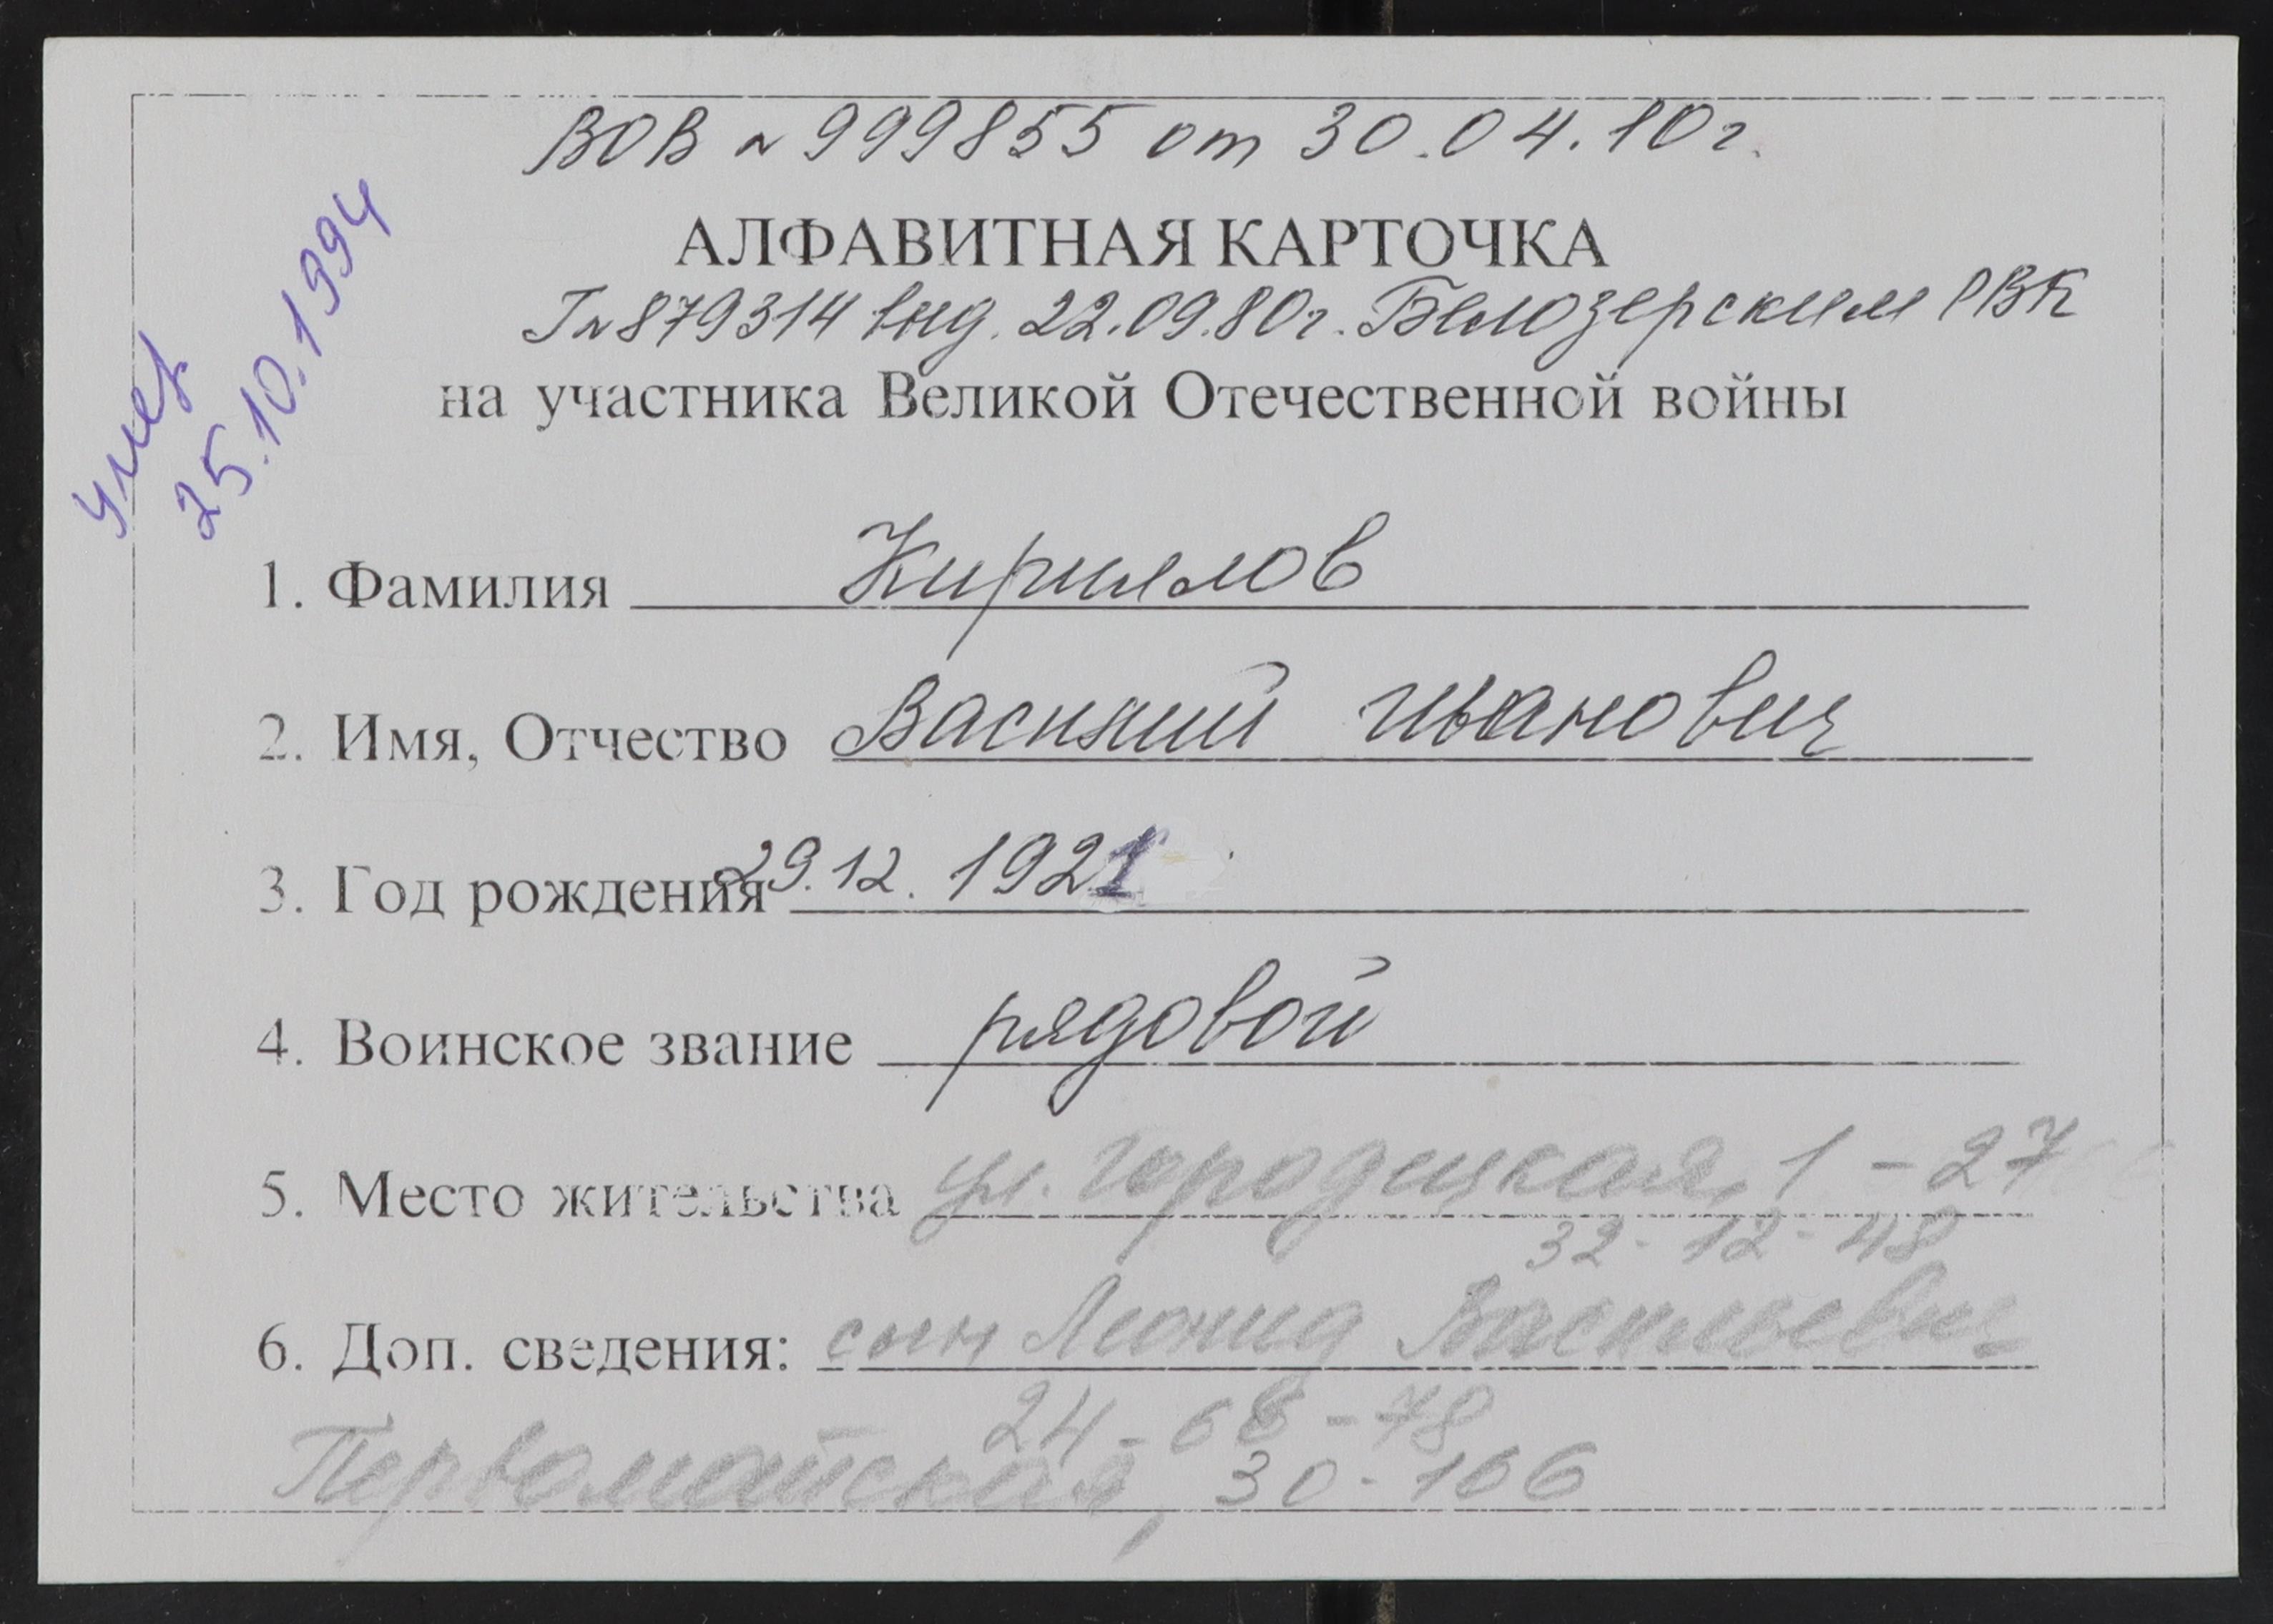 ВОВ № 999855 от 30.04.80г.
АЛФАВИТНАЯ КАРТОЧКА
Г№879314 выд. 22.09.80г. Белозерским РВК
на участника Великой Отечественной войны
умер
25.10.1994
1. Фамилия Кириллов
2. Имя, Отчество Василий Иванович
3. Год рождения 29.12.1921
4. Воинское звание рядовой
5. Место жительства ул. Городецкая, 1 - 27
32-12-48
6. Доп. сведения: сын Леонид Васильевич
24-68-78
Первомайская, 30-166